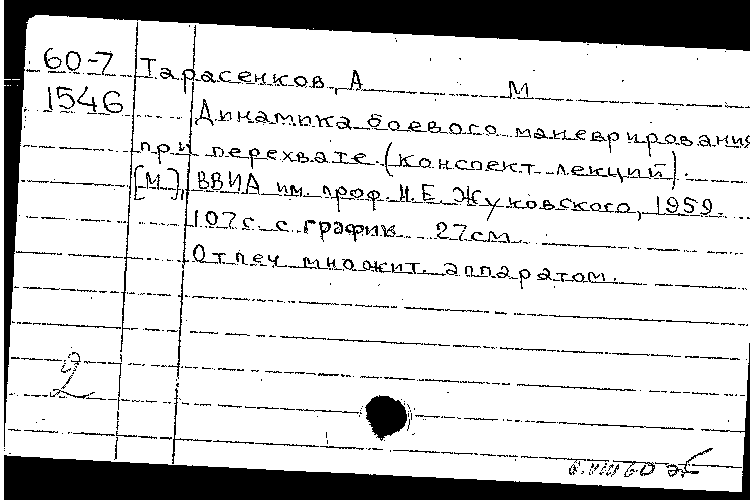 60-7 Тарасенков, А М
1546 Динамика боевого маневрирования
при перехвате. (Конспект лекций).
[М], ВВИА им. проф. Н. Е. Жуковского, 1959.
107 с. с график 27 см.
Отпеч множит. аппаратом.
2